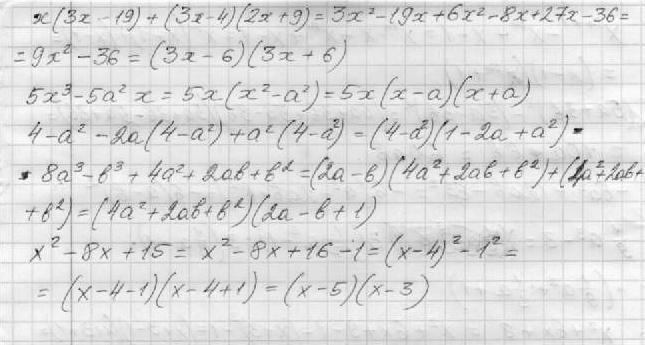 x(3x-19)+(3x-4)(2x+9)=3x²-19x+6x²-8x+27x-36=
=9x²-36=(3x-6)(3x+6)
5x³-5a²x=5x(x²-a²)=5x(x-a)(x+a)
4-a²-2a(4-a²)+a²(4-a²)=(4-a²)(1-2a+a²)
8a³-b³+4a²+2ab+b²=(2a-b)(4a²+2ab+b²)+(4a²+2ab+
+b²)=(4a²+2ab+b²)(2a-b+1)
x²-8x+15=x²-8x+16-1=(x-4)²-1²=
=(x-4-1)(x-4+1)=(x-5)(x-3)